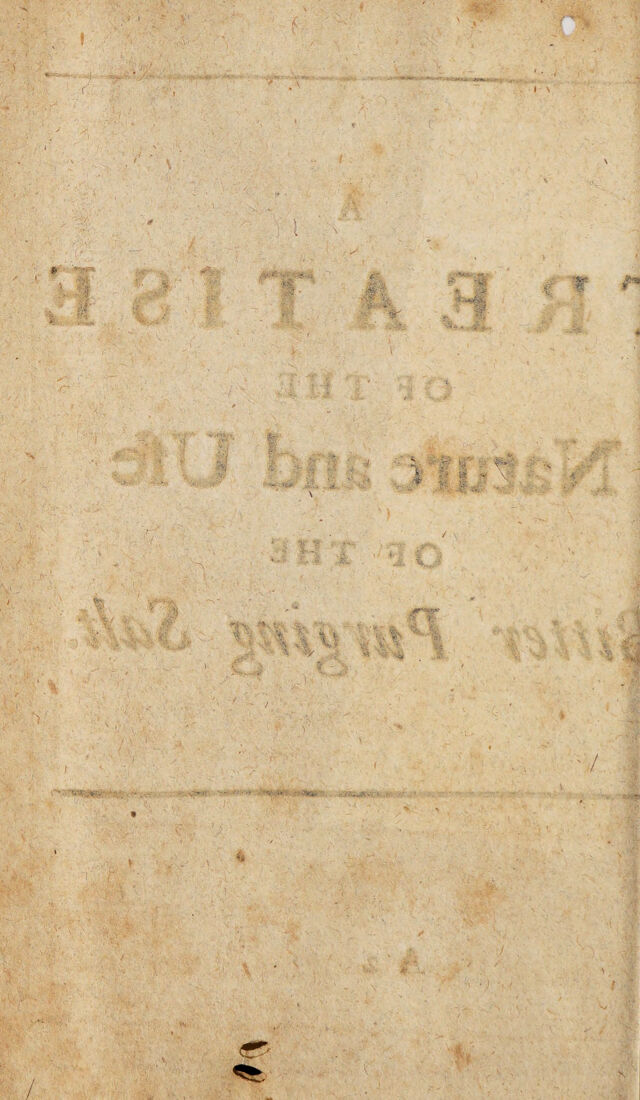 A
TREATISE
OF THE
Nature and Uſe
OF THE
Bitter Purging Salt.
A 2